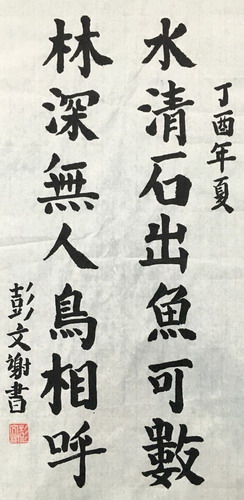 丁酉年夏
水清石出魚可數
林深無人鳥相呼
彭文謝書